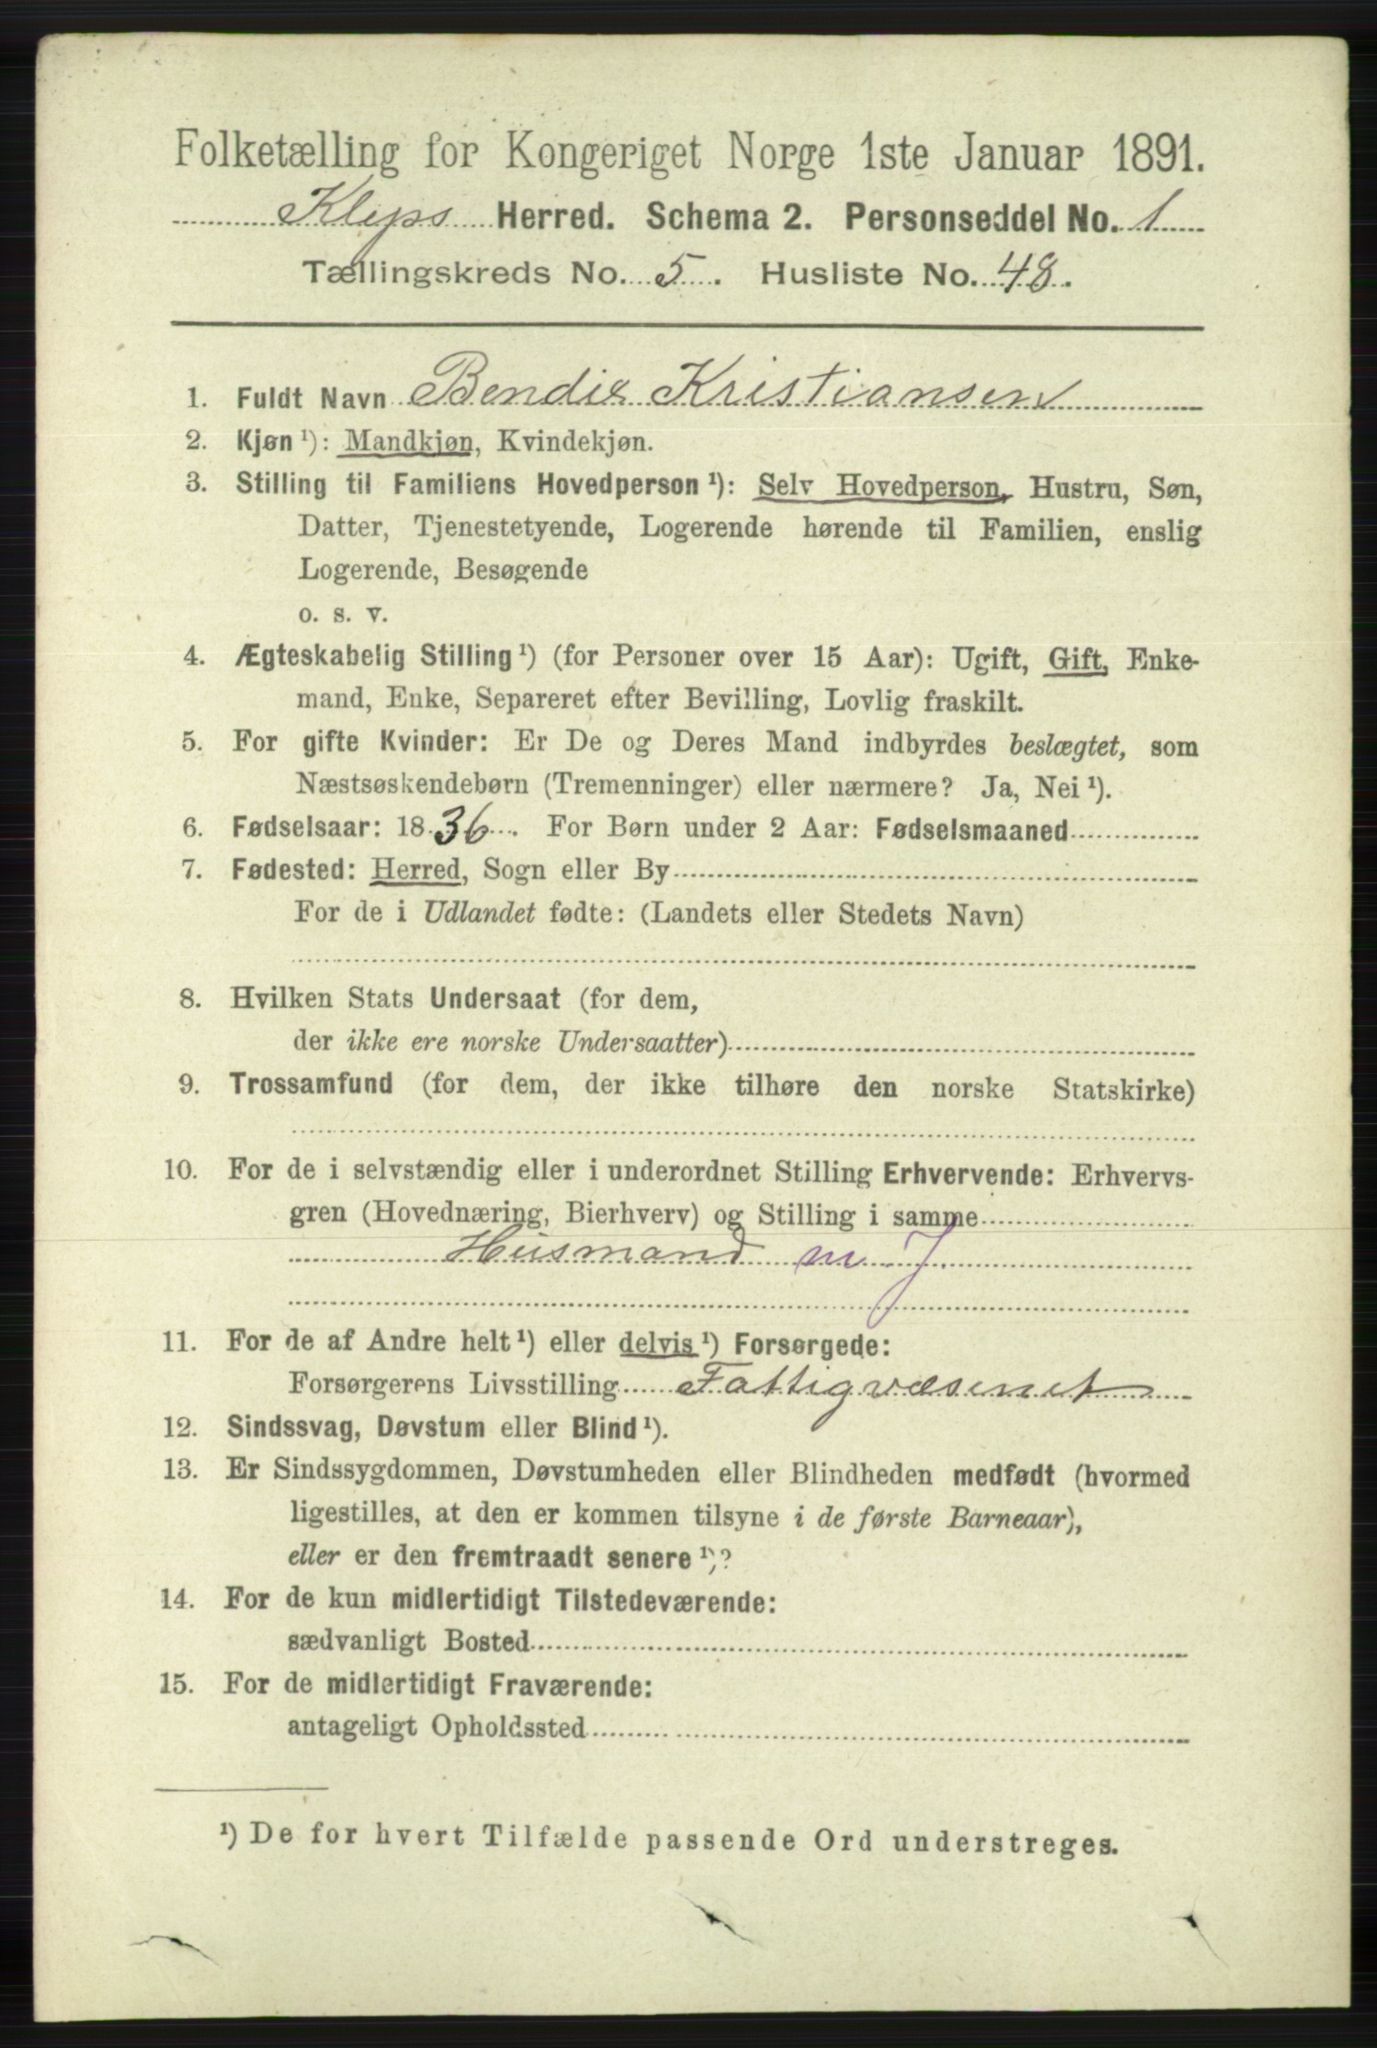 Folketælling for Kongeriget Norge 1ste Januar 1891.
Kleps Herred. Schema 2. Personseddel No. 1
Tællingskreds No. 5. Husliste No. 48.
1. Fuldt Navn Bendix Kristiansen
2. Kjøn ¹): Mandkjøn, Kvindekjøn.
3. Stilling til Familiens Hovedperson ¹): Selv Hovedperson, Hustru, Søn,
Datter, Tjenestetyende, Logerende hørende til Familien, enslig
Logerende, Besøgende
o. s. v.
4. Ægteskabelig Stilling ¹) (for Personer over 15 Aar): Ugift, Gift, Enke-
mand, Enke, Separeret efter Bevilling, Lovlig fraskilt.
5. For gifte Kvinder: Er De og Deres Mand indbyrdes beslægtet, som
Næstsøskendebørn (Tremenninger) eller nærmere? Ja, Nei ¹).
6. Fødselsaar: 1836. For Børn under 2 Aar: Fødselsmaaned
7. Fødested: Herred, Sogn eller By
For de i Udlandet fødte: (Landets eller Stedets Navn)
8. Hvilken Stats Undersaat (for dem,
der ikke ere norske Undersaatter)
9. Trossamfund (for dem, der ikke tilhøre den norske Statskirke)
10. For de i selvstændig eller i underordnet Stilling Erhvervende: Erhvervs-
gren (Hovednæring, Bierhverv) og Stilling i samme
Husmand m J
11. For de af Andre helt ¹) eller delvis ¹) Forsørgede:
Forsørgerens Livsstilling Fattigvæsenet
12. Sindssvag, Døvstum eller Blind ¹).
13. Er Sindssygdommen, Døvstumheden eller Blindheden medfødt (hvormed
ligestilles, at den er kommen tilsyne i de første Barneaar),
eller er den fremtraadt senere ¹)?
14. For de kun midlertidigt Tilstedeværende:
sædvanligt Bosted
15. For de midlertidigt Fraværende:
antageligt Opholdssted
¹) De for hvert Tilfælde passende Ord understreges.